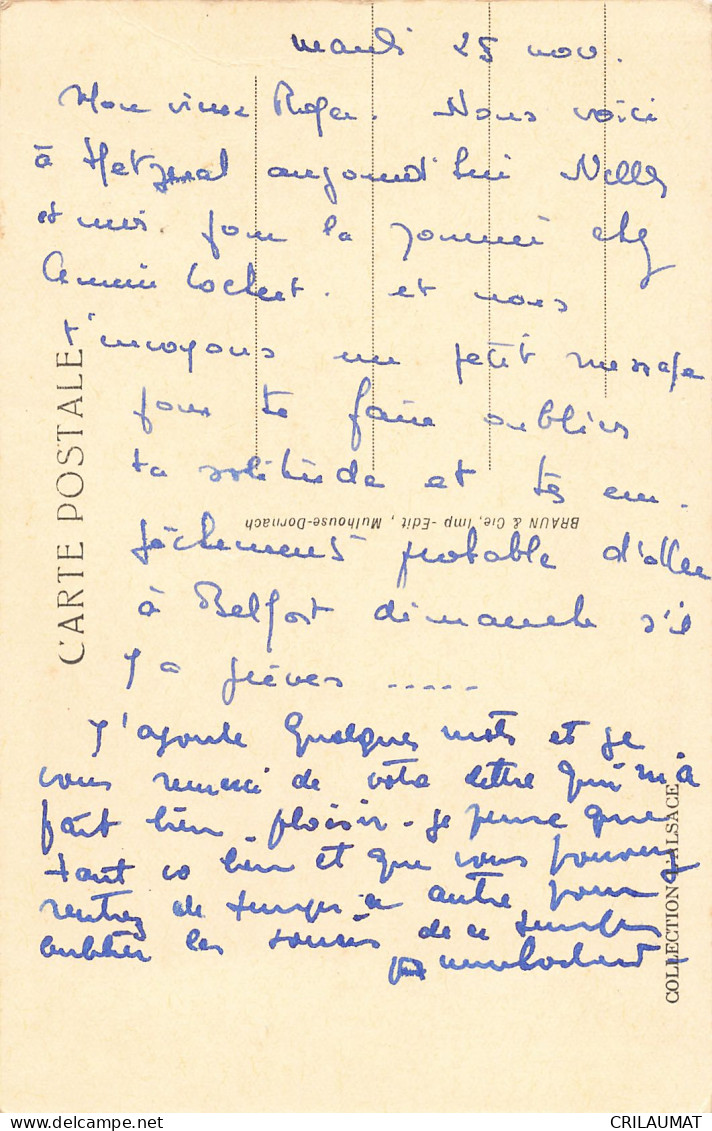 mardi 25 nov.
Mon vieux Roger. Nous voici
à Metzeral aujourd'hui
et moi pour la journée chez
et nous
t'envoyons un petit message
pour te faire oublier
ta solitude et tes em-
pêchements probable d'aller
à Belfort dimanche s'il
y a grèves .....
J'ajoute quelques mots et je
vous remerci de votre lettre qui m'a
fait bien plaisir - je pense que
tout va bien et que vous pouvez
rentrez de temps à autre pour
oublier les soucis de ce temps
CARTE POSTALE
BRAUN & Cie, Imp.-Edit., Mulhouse-Dornach
COLLECTION D'ALSACE
CRILAUMAT